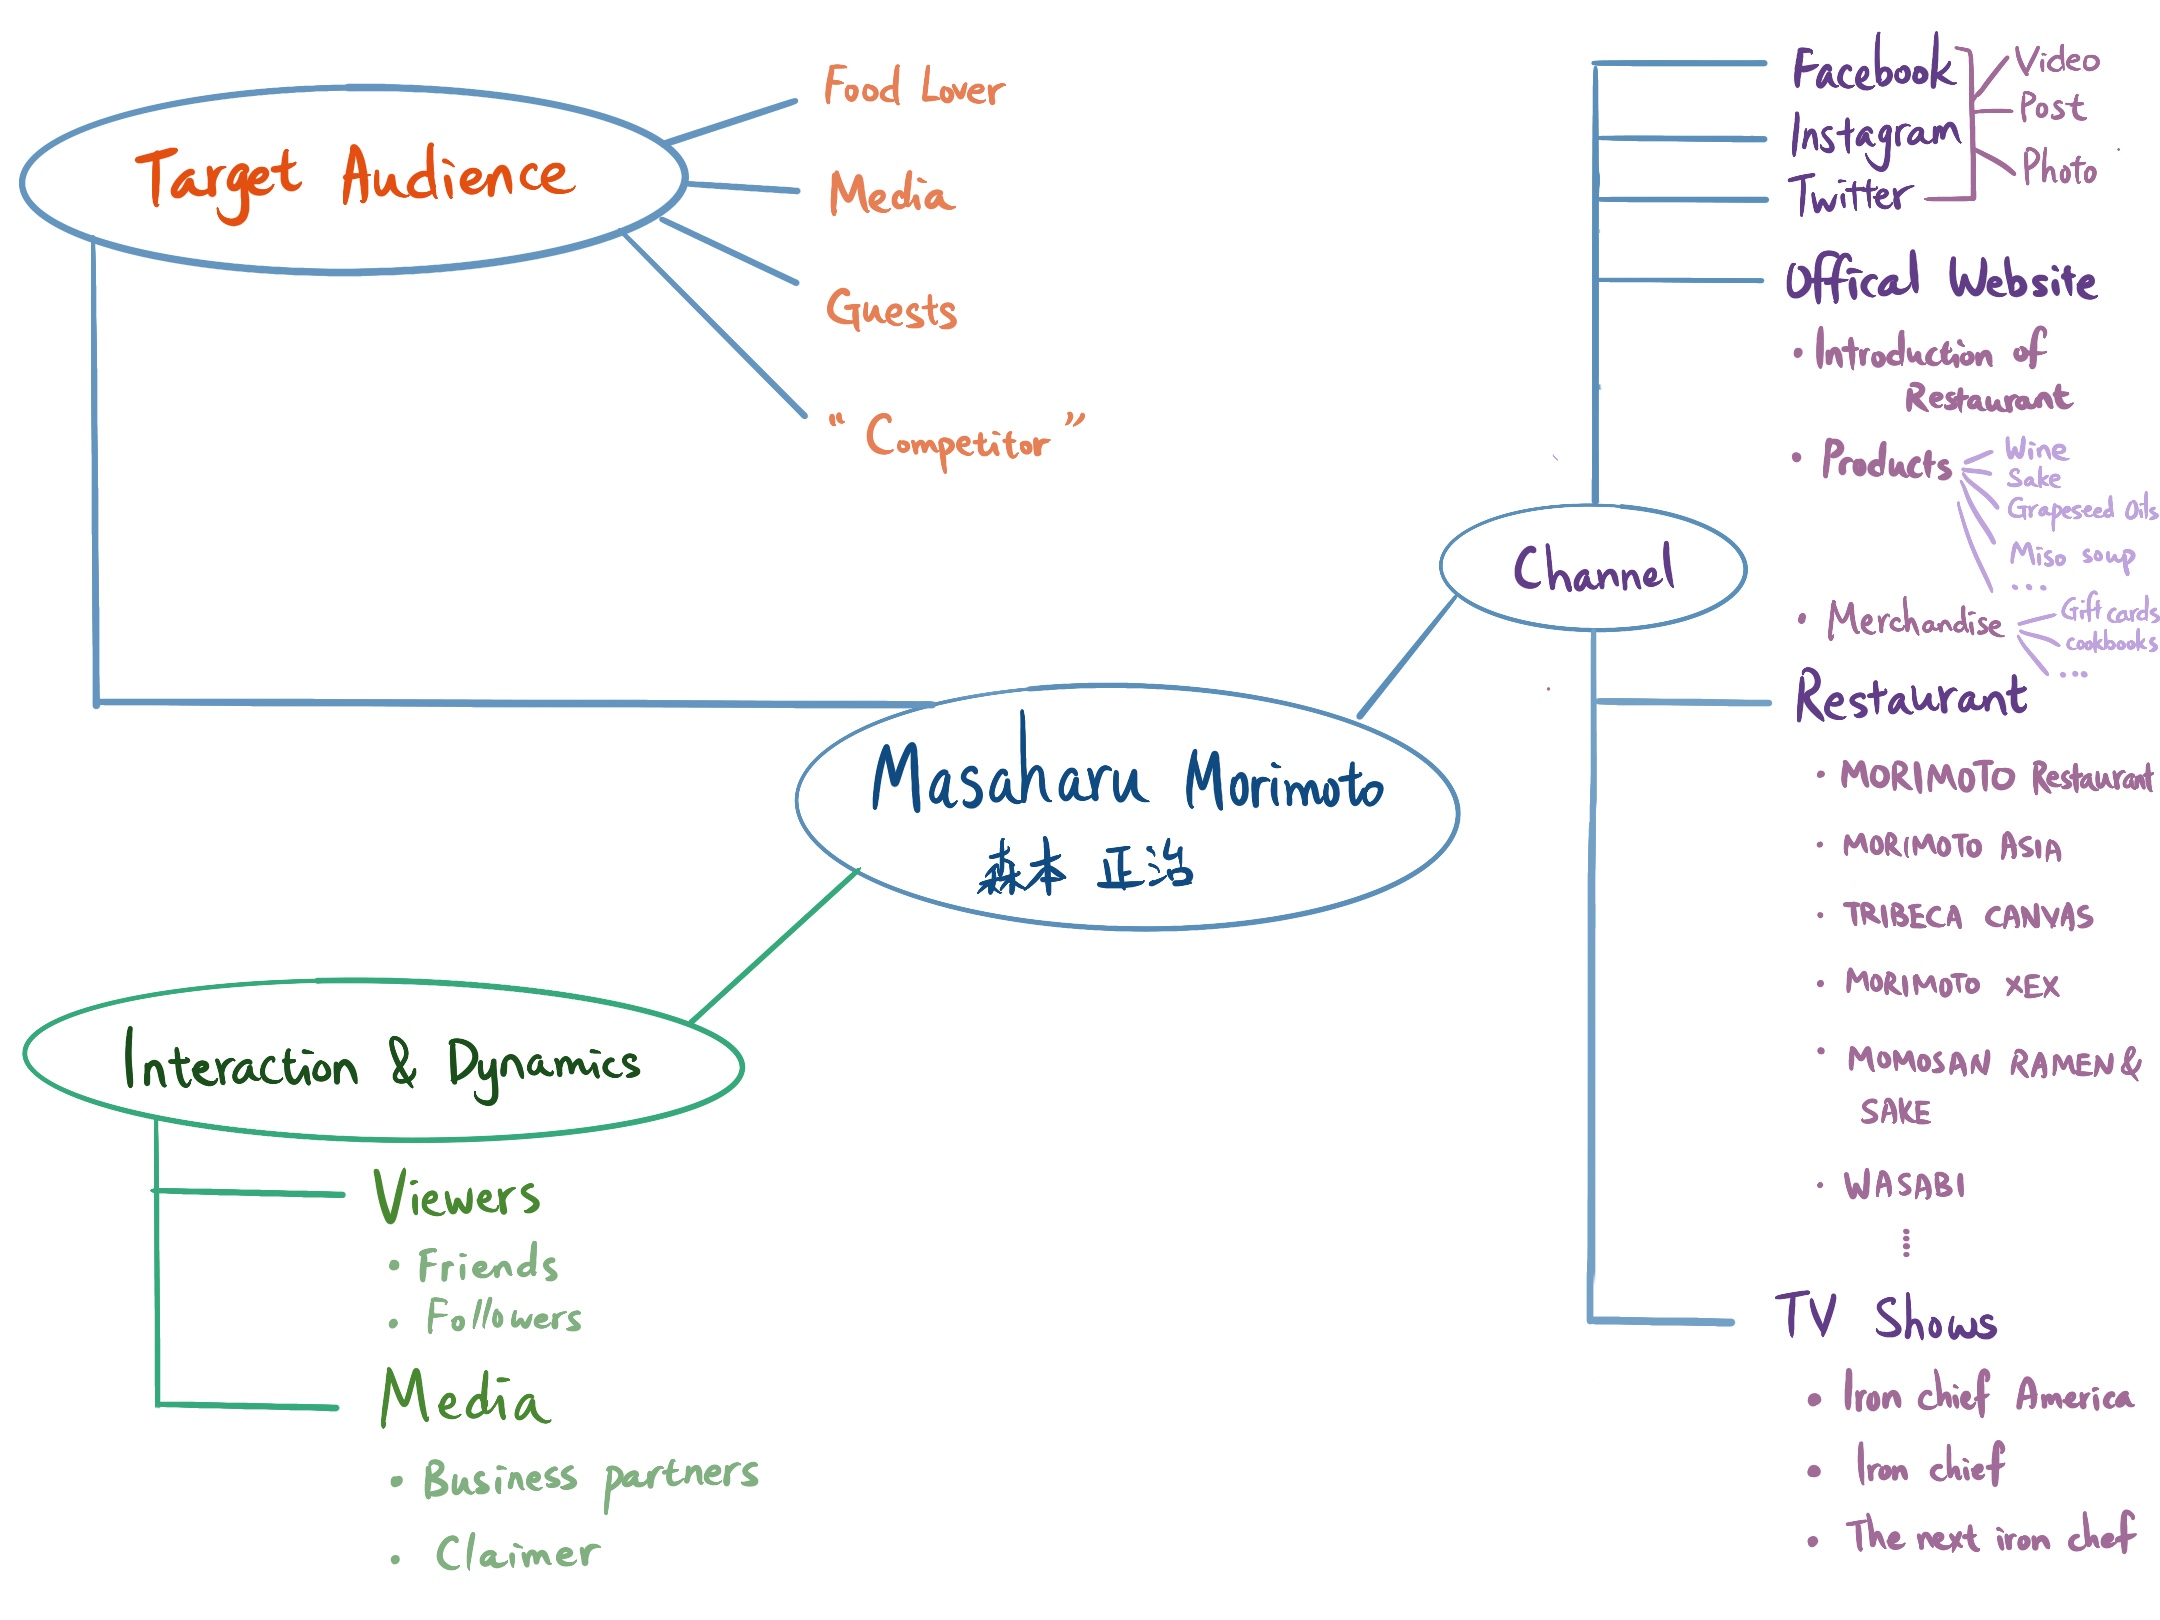 Target Audience
Food Lover
Media
Guests
“ Competitor ”
Masaharu Morimoto
森本 正治
Interaction & Dynamics
Viewers
• Friends
• Followers
Media
• Business partners
• Claimer
Channel
Facebook
Instagram
Twitter
Video
Post
Photo
Offical Website
• Introduction of
Restaurant
• Products
Wine
Sake
Grapeseed Oils
Miso soup
...
• Merchandise
Gift cards
cookbooks
...
Restaurant
• MORIMOTO Restaurant
• MORIMOTO ASIA
• TRIBECA CANVAS
• MORIMOTO XEX
• MOMOSAN RAMEN &
SAKE
• WASABI
TV Shows
• Iron chief America
• Iron chief
• The next iron chef